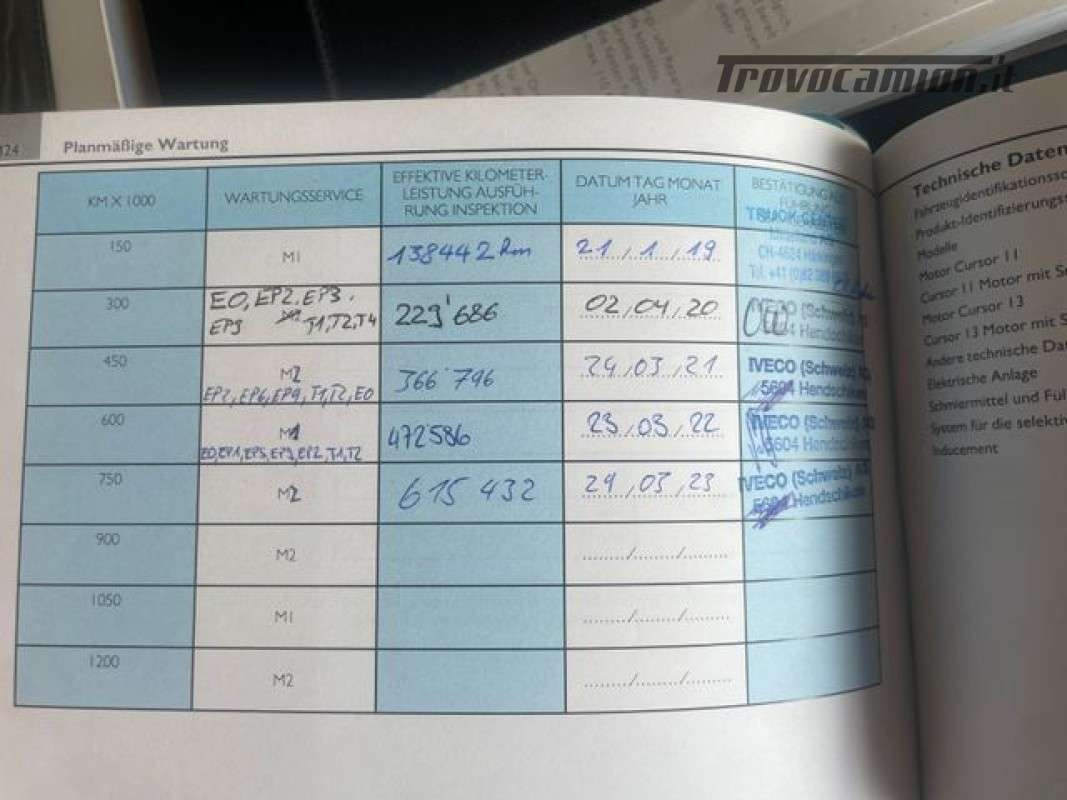 Trovocamion.it
124
Planmäßige Wartung
KM X 1000
WARTUNGSSERVICE
EFFEKTIVE KILOMETER-
LEISTUNG AUSFÜH-
RUNG INSPEKTION
DATUM TAG MONAT
JAHR
BESTÄTIGUNG
150
M1
138442 km
21/1/19
TRUCK CENTER
CH-4624 Härkingen
300
E0, EP2, EP3.
EP9
T1, T2, T4
223'686
02,04,20
IVECO (Schweiz)
Hendschiken
450
M2
EP2, EP6, EP9, T1, T2, E0
366'796
24,03,21
IVECO (Schweiz)
5604 Hendschiken
600
M1
E0, EP1, EP5, EP3, EP2, T1, T2
472'586
23,03,22
IVECO (Schweiz)
5604 Hendschiken
750
M2
615 432
29,03,23
IVECO (Schweiz)
5604 Hendschiken
900
M2
....../......./.......
1050
M1
....../......./.......
1200
M2
....../......./.......
Technische Daten
Fahrzeugidentifikationssc
Produkt-Identifizierungss
Modelle
Motor Cursor 11
Cursor 11 Motor mit Se
Motor Cursor 13
Cursor 13 Motor mit S
Andere technische Da
Elektrische Anlage
Schmiermittel und Fül
System für die selektiv
Inducement